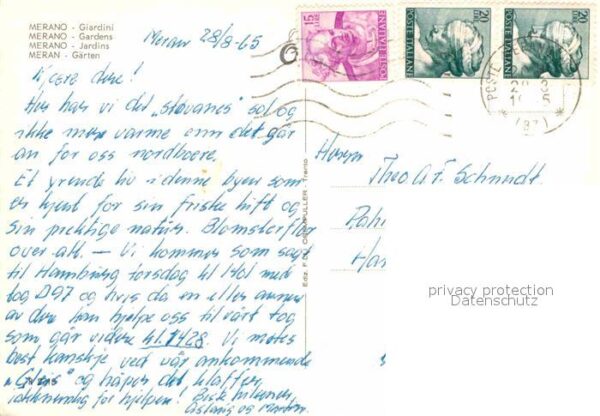 MERANO - Giardini
MERANO - Gardens
MERANO - Jardins
MERAN - Gärten
Meran 28/8-65
15 LIRE
POSTE ITALIANE
20 LIRE
POSTE ITALIANE
20 LIRE
POSTE ITALIANE
POSTE
(BZ)
Kjære dere!
Her har vi det „støvanes" sol og
ikke mere varme enn det går
an for oss nordboere.
Et yrende liv i denne byen som
er kjent for sin friske luft og
sin praktige natur. Blomsterflor
over alt. — Vi kommer som sagt
til Hamburg torsdag kl. med
tog D97 og hvis da en eller annen
av dere kan hjelpe oss til vårt tog
som går videre kl. 1428. Vi møtes
best kanskje ved vår ankommende
„Gleis" og håper det klaffer.
for hjelpen! Beste hilsener
Aslaug og
Ediz. F. - Trento
Herrn
Theo A F. Schmidt.
Ha
privacy protection
Datenschutz